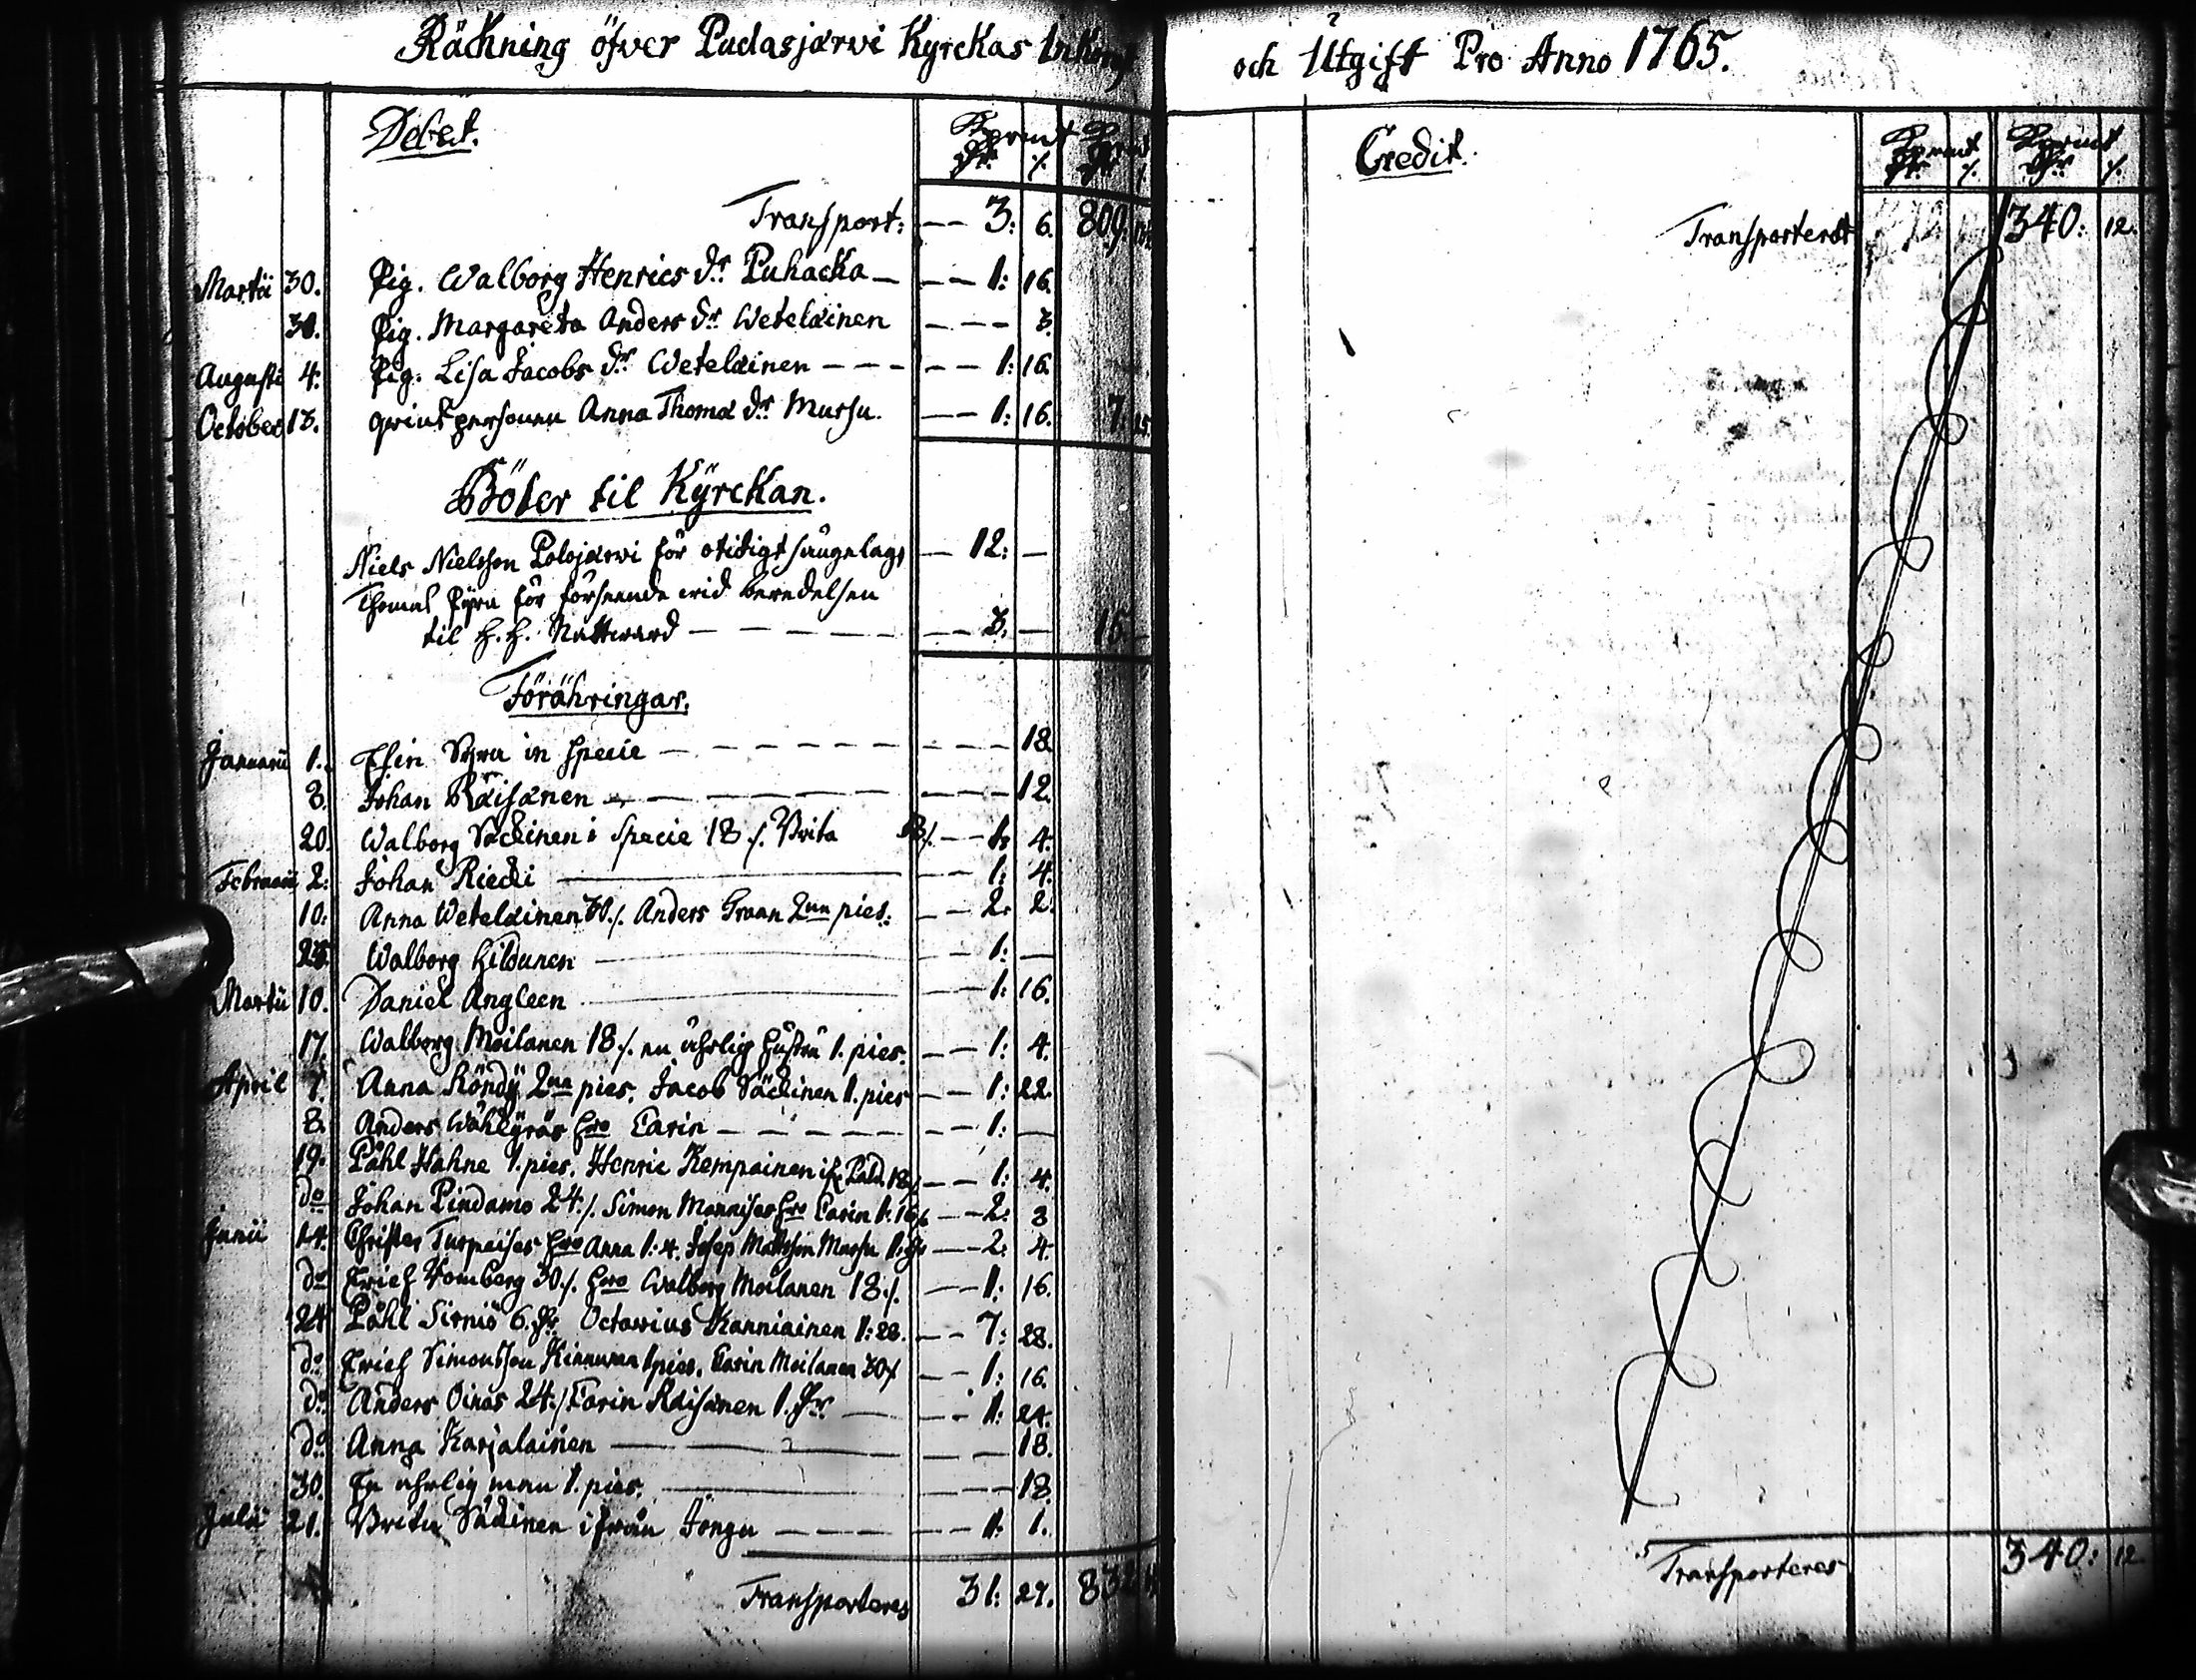 Räckning öfver Pudasjärvi Kyrckas Inkomst
Debet.
Kopmt Kopmt
Transport: — — 3: 6. 809.
Martii 30. Pig. Walborg Henrics dr. Puhacka — — — 1: 16.
30. Pig. Margareta Anders dr. Wetelainen — — — 3.
Augusti 4. Pig. Lisa Jacobs dr. Wetelainen — — — — — 1: 16.
October 13. qwinspersonen Anna Thomæ dr. Mursu. — — 1: 16. 7: 25.
Böter til Kyrckan.
Niels Nielsson Polojärwi för otidigt — 12: —
Thomas för förseende wid beredelsen
til H. H. Nattward — — — — — — 3. — 15. —
Förähringar.
Januarii 1. Elin in specie — — — — — — — — 18.
8. Johan Räisänen — — — — — — — — 12.
20. Walborg Säckinen i Specie 18 ./. Brita 18 ./. — — 1: 4.
Februarii 2: Johan Riecki — — — 1: 4.
10: Anna Wetelainen 30 ./. Anders Graan 2ne pies: — — 2: 2.
24. Walborg Hildunen — — 1: —
Martii 10. Daniel Angleen — — 1: 16.
17. Walborg Moilanen 18 ./. en ährlig hustru 1. pies. — — 1: 4.
April 7. Anna Röndy 2ne pies. Jacob Säckinen 1. pies — — 1: 22.
8. Anders Wählgräs hro Carin — — — — — — 1: —
19. Påhl Hahne 1. pies. Henric Kempainen 18 ./. — — 1: 4.
do Johan Pindamo 24 ./. Simon Mannises hro Carin 1: 16 — — 2: 8
Junii 14. Christer Turpeises hro Anna 1: 4. Josep Matsson Mursu — — 2: 4.
do Erich Homberg 30 ./. hro Walborg Moilanen 18 ./. — — 1: 16.
24 Påhl Sirniö 6. Octavius Kanniainen 1: 28. — — 7: 28.
do Erich Simonsson Kinnunen 1 pies. Carin Moilanen 30 ./. — — 1: 16.
do Anders Oinas 24 ./. Carin Räisänen 1. — — 1: 24.
do Anna Karjalainen — — — — 18.
30. En ährlig man 1. pies. — — — 18.
Julii 21. Brita Säckinen ifrån Jongu — — — — 1: 1.
Transporteres 31: 27.
och Utgift Pro Anno 1765.
Credit.
Kopmt Kopmt
Transporterat 340: 12.
Transporteres 340: 12